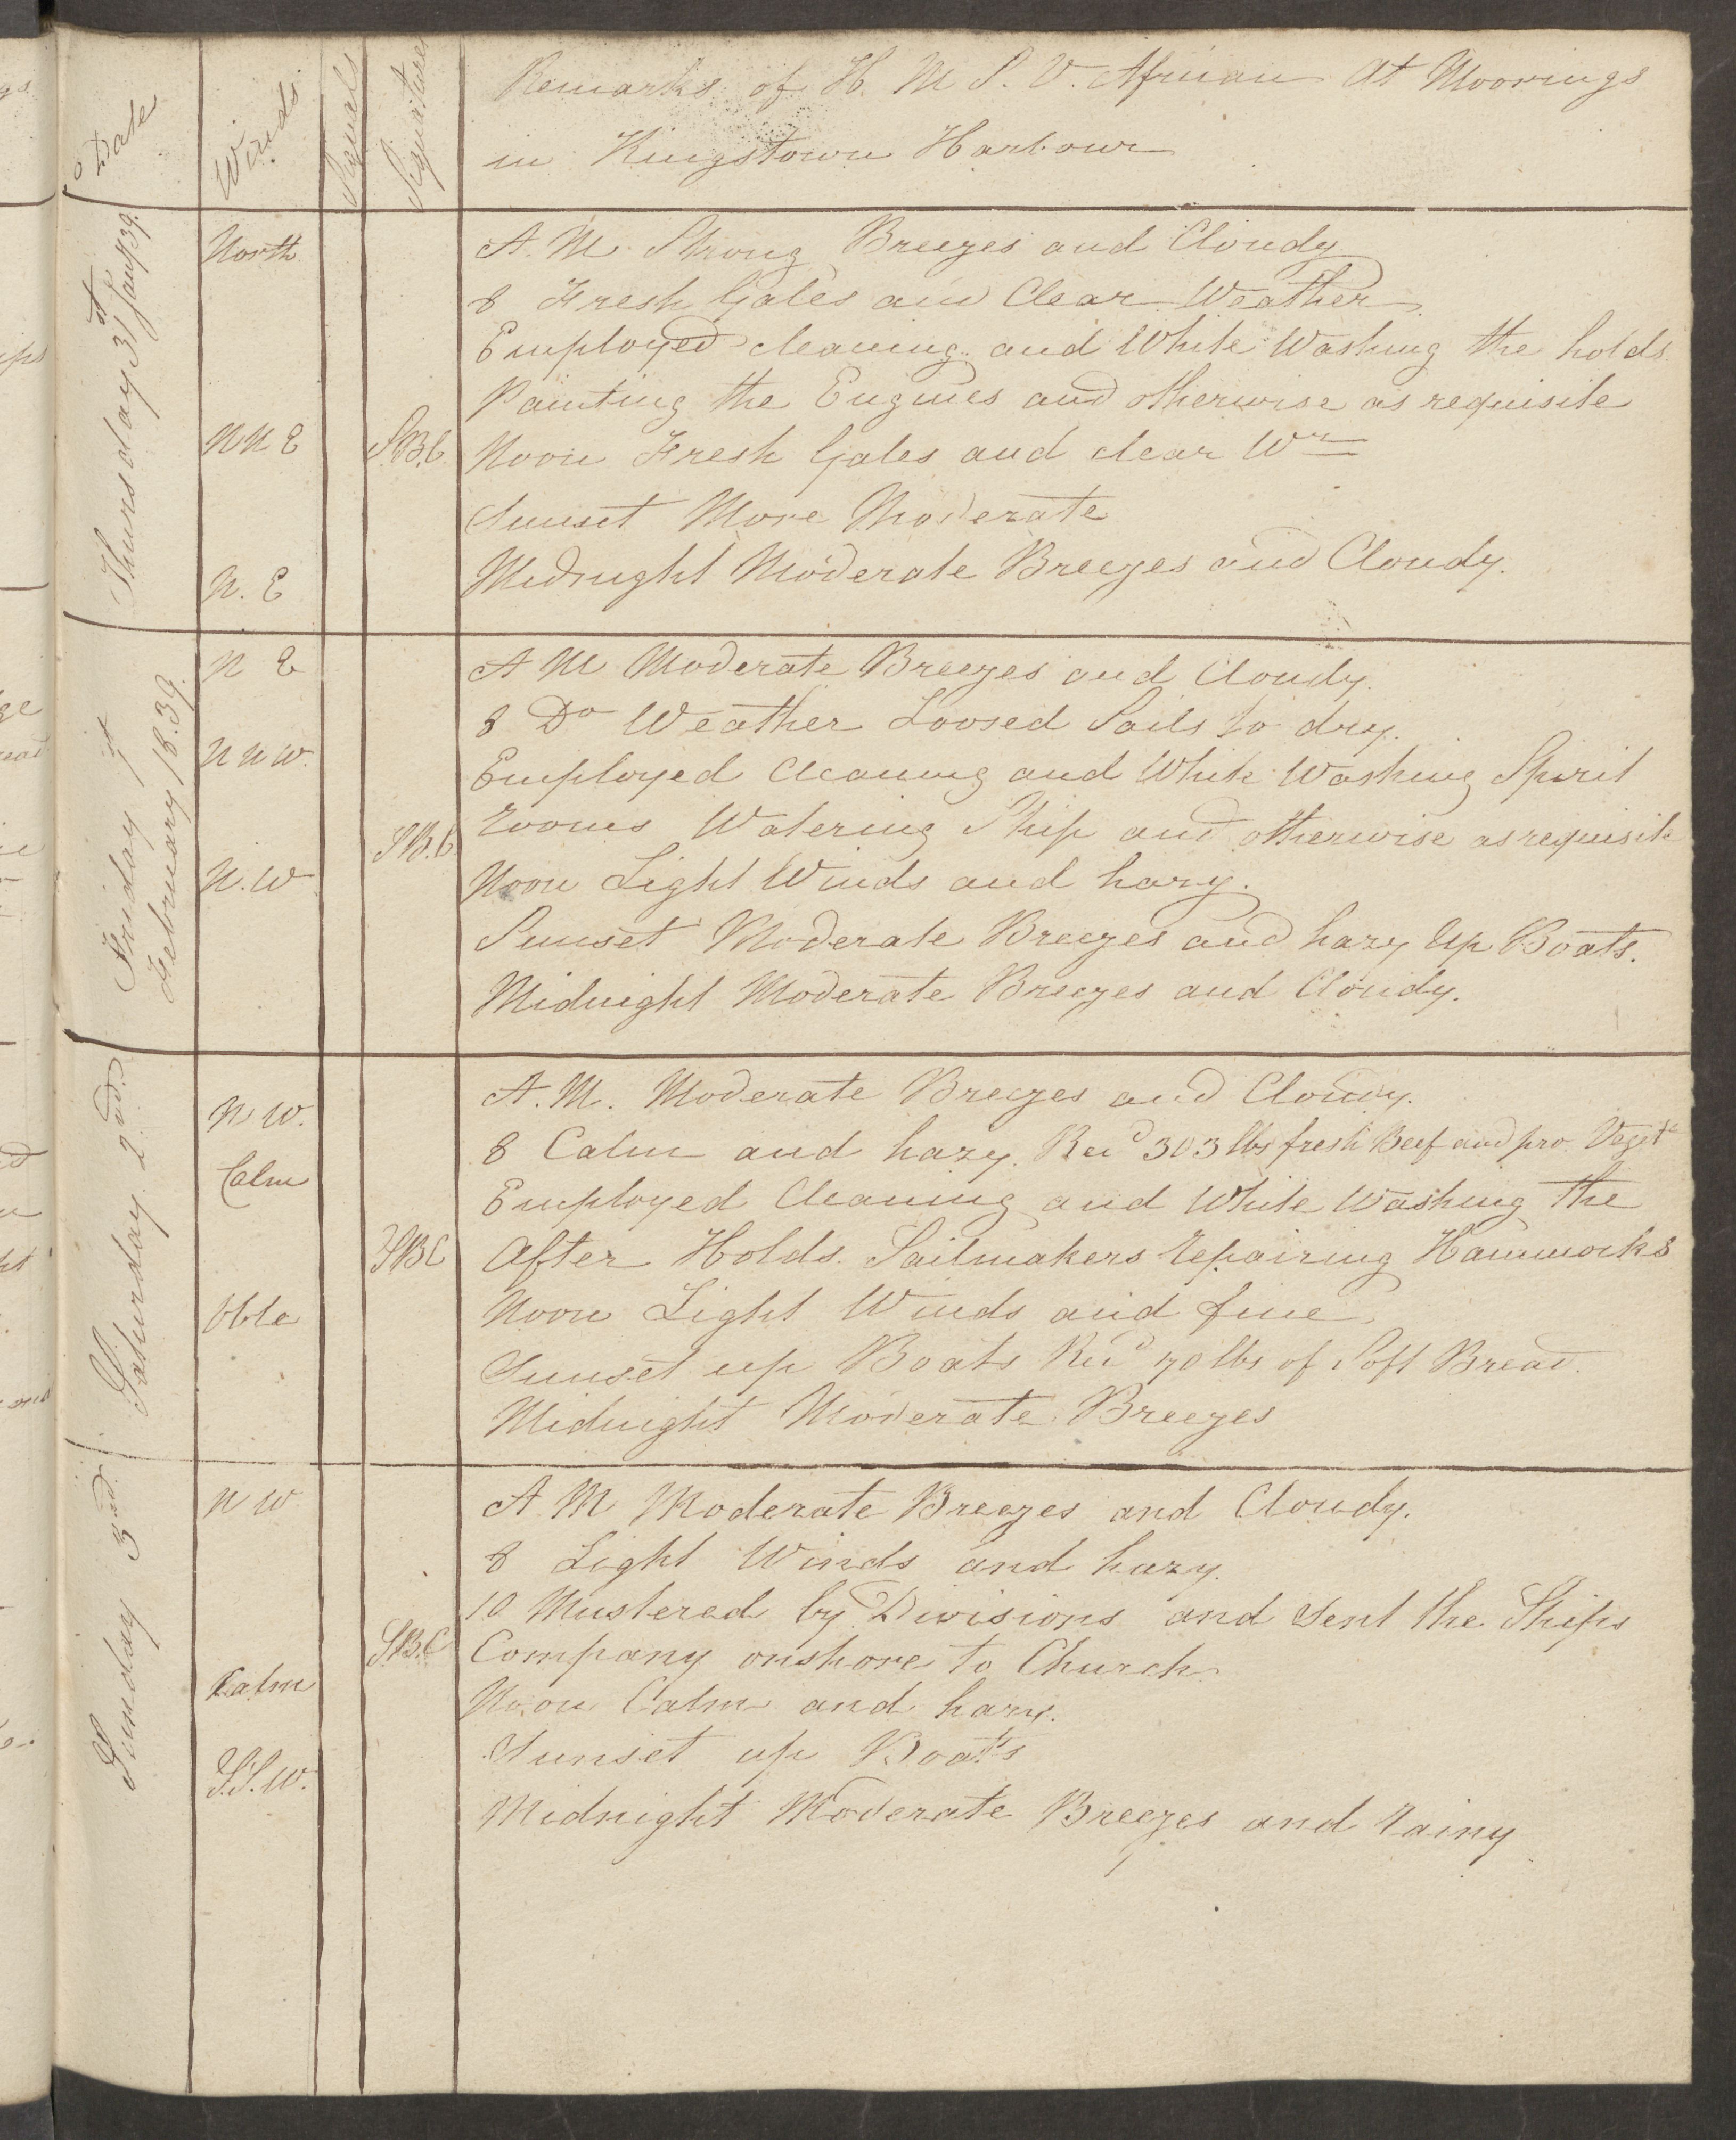 Date
Winds
Signals
Signatures
Remarks of H. M. S. V. African At Moorings
in Kingstown Harbour
Thursday 31st Jany 39.
North
N N E
N. E
S.B.C.
A. M. Strong Breezes and Cloudy
8 Fresh Gales and Clear Weather.
Employed cleaning and White Washing the holds
Painting the Engines and otherwise as requisite
Noon Fresh Gales and clear Wr
Sunset More Moderate
Midnight Moderate Breezes and Cloudy.
Friday 1st
February 18.39.
N E
N N W.
N. W
S.B.C.
A M Moderate Breezes and Cloudy.
8 Do Weather Loosed Sails to dry.
Employed Cleaning and White Washing Spirit
rooms Watering Ship and otherwise as requisite
Noon Light Winds and hazy.
Sunset Moderate Breezes and hazy Up Boats.
Midnight Moderate Breezes and Cloudy.
Saturday 2nd.
N W.
Calm
Vble
SBC
A. M. Moderate Breezes and Cloudy.
8 Calm and hazy. Recd 303 lbs fresh Beef and pro Veget
Employed Cleaning and White Washing the
After Holds. Sailmakers repairing Hammocks
Noon Light Winds and fine.
Sunset up Boats Recd 70 lbs of Soft Bread.
Midnight Moderate Breezes
Sunday 3rd
N W
Calm
S.S.W.
S.B.C
A M Moderate Breezes and Cloudy.
8 Light Winds and hazy.
10 Mustered by Divisions and Sent the Ships
Company onshore to Church
Noon Calm and hazy.
Sunset up Boats
Midnight Moderate Breezes and rainy